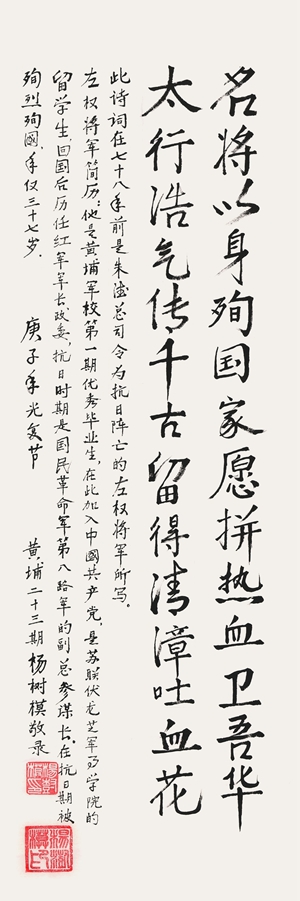 名将以身殉国家愿拼热血卫吾华
太行浩气传千古留得清漳吐血花
此诗词在七十八年前是朱德总司令为抗日阵亡的左权将军所写。
左权将军简历：他是黄埔军校第一期优秀毕业生，在此加入中國共产党，是苏联伏龙芝军事学院的
留学生回国后历任红军军长政委，抗日时期是国民革命军第八路军的副总参谋长。在抗日期被
殉烈殉國，年仅三十七岁．
庚子年光复节
黄埔二十三期杨树模敬录